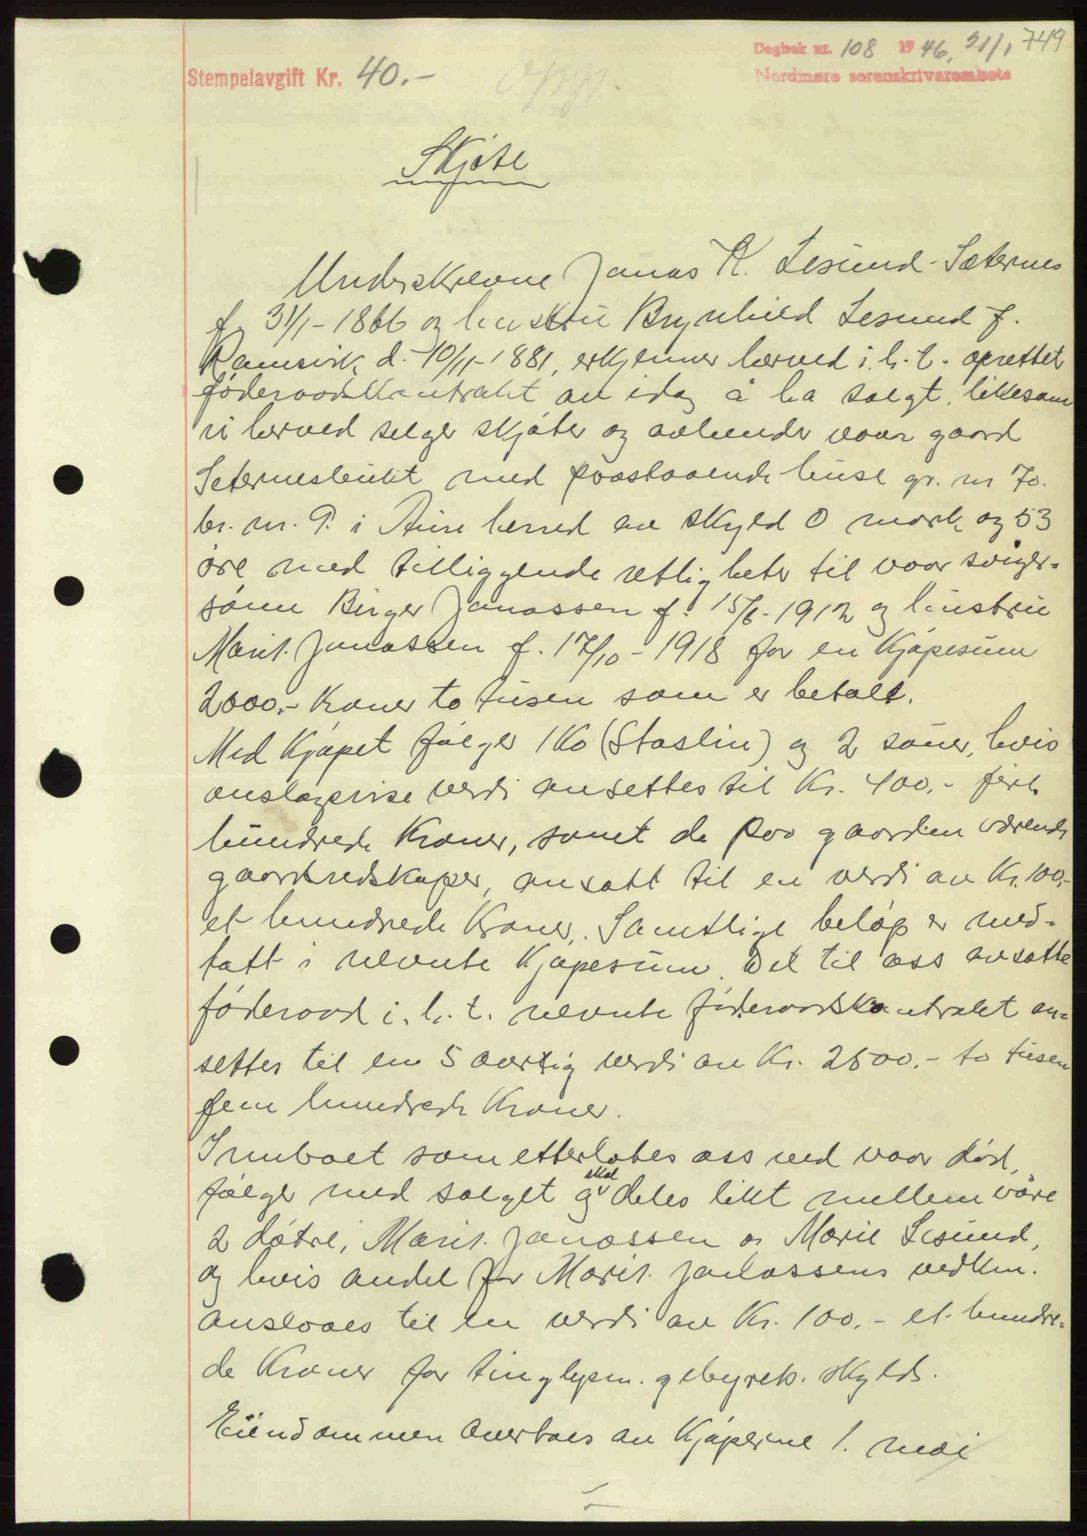 749
Dagbok nr. 108 1946, 21/1
Nordmøre sorenskriverembete
Stempelavgift Kr. 40.-
opp.
Skjøte
Underskrevne Jonas K. Lesund-Sæternes
f. 31/1-1866 og hustru Brynhild Lesund f.
Ramsvik d. 10/11-1881, erkjenner herved i.h.t. oprettet
føderoodskontrakt av idag å ha solgt, likesom
vi herved selger skjøter og avhender voor goord
Seternesbukt med poostooende huse gr. nr 70.
br. nr. 9. i Aure herred av skyld 0 mark og 53
øre med tilliggende rettigheter til voor sviger-
sønn Birger Jonassen f. 15/6-1912 og hustru
Marit Jonassen f. 17/10-1918 for en Kjøpesum
2000.- Kroner to tusen som er betalt.
Med Kjøpet følger 1 Ko (Staslin) og 2 sauer, hvis
anslagsvise verdi ansettes til Kr. 400.- fire
hundrede Kroner, samt de poo goorden værende
goordsredskaper, ansatt til en verdi av Kr. 100.-
et hundrede Kroner. Samtlige beløp er med-
tatt i nevnte Kjøpesum. Det til oss ansatte
føderood i.h.t. nevnte føderoodskontrakt an-
settes til en 5 oorlig verdi av Kr. 2500.- to tusen
fem hundrede Kroner.
Innboet som etterlates oss ved voor død,
følger med salget og skal deles likt mellem våre
2 døtre, Marit Jonassen og Marie Lesund,
og hvis andel for Marit Jonassens vedkm.
ansloaes til en verdi av Kr. 100.- et hundre-
de Kroner for tinglysn. gebyrets skyld.
Eiendommen overtaes av Kjøperne 1. mai